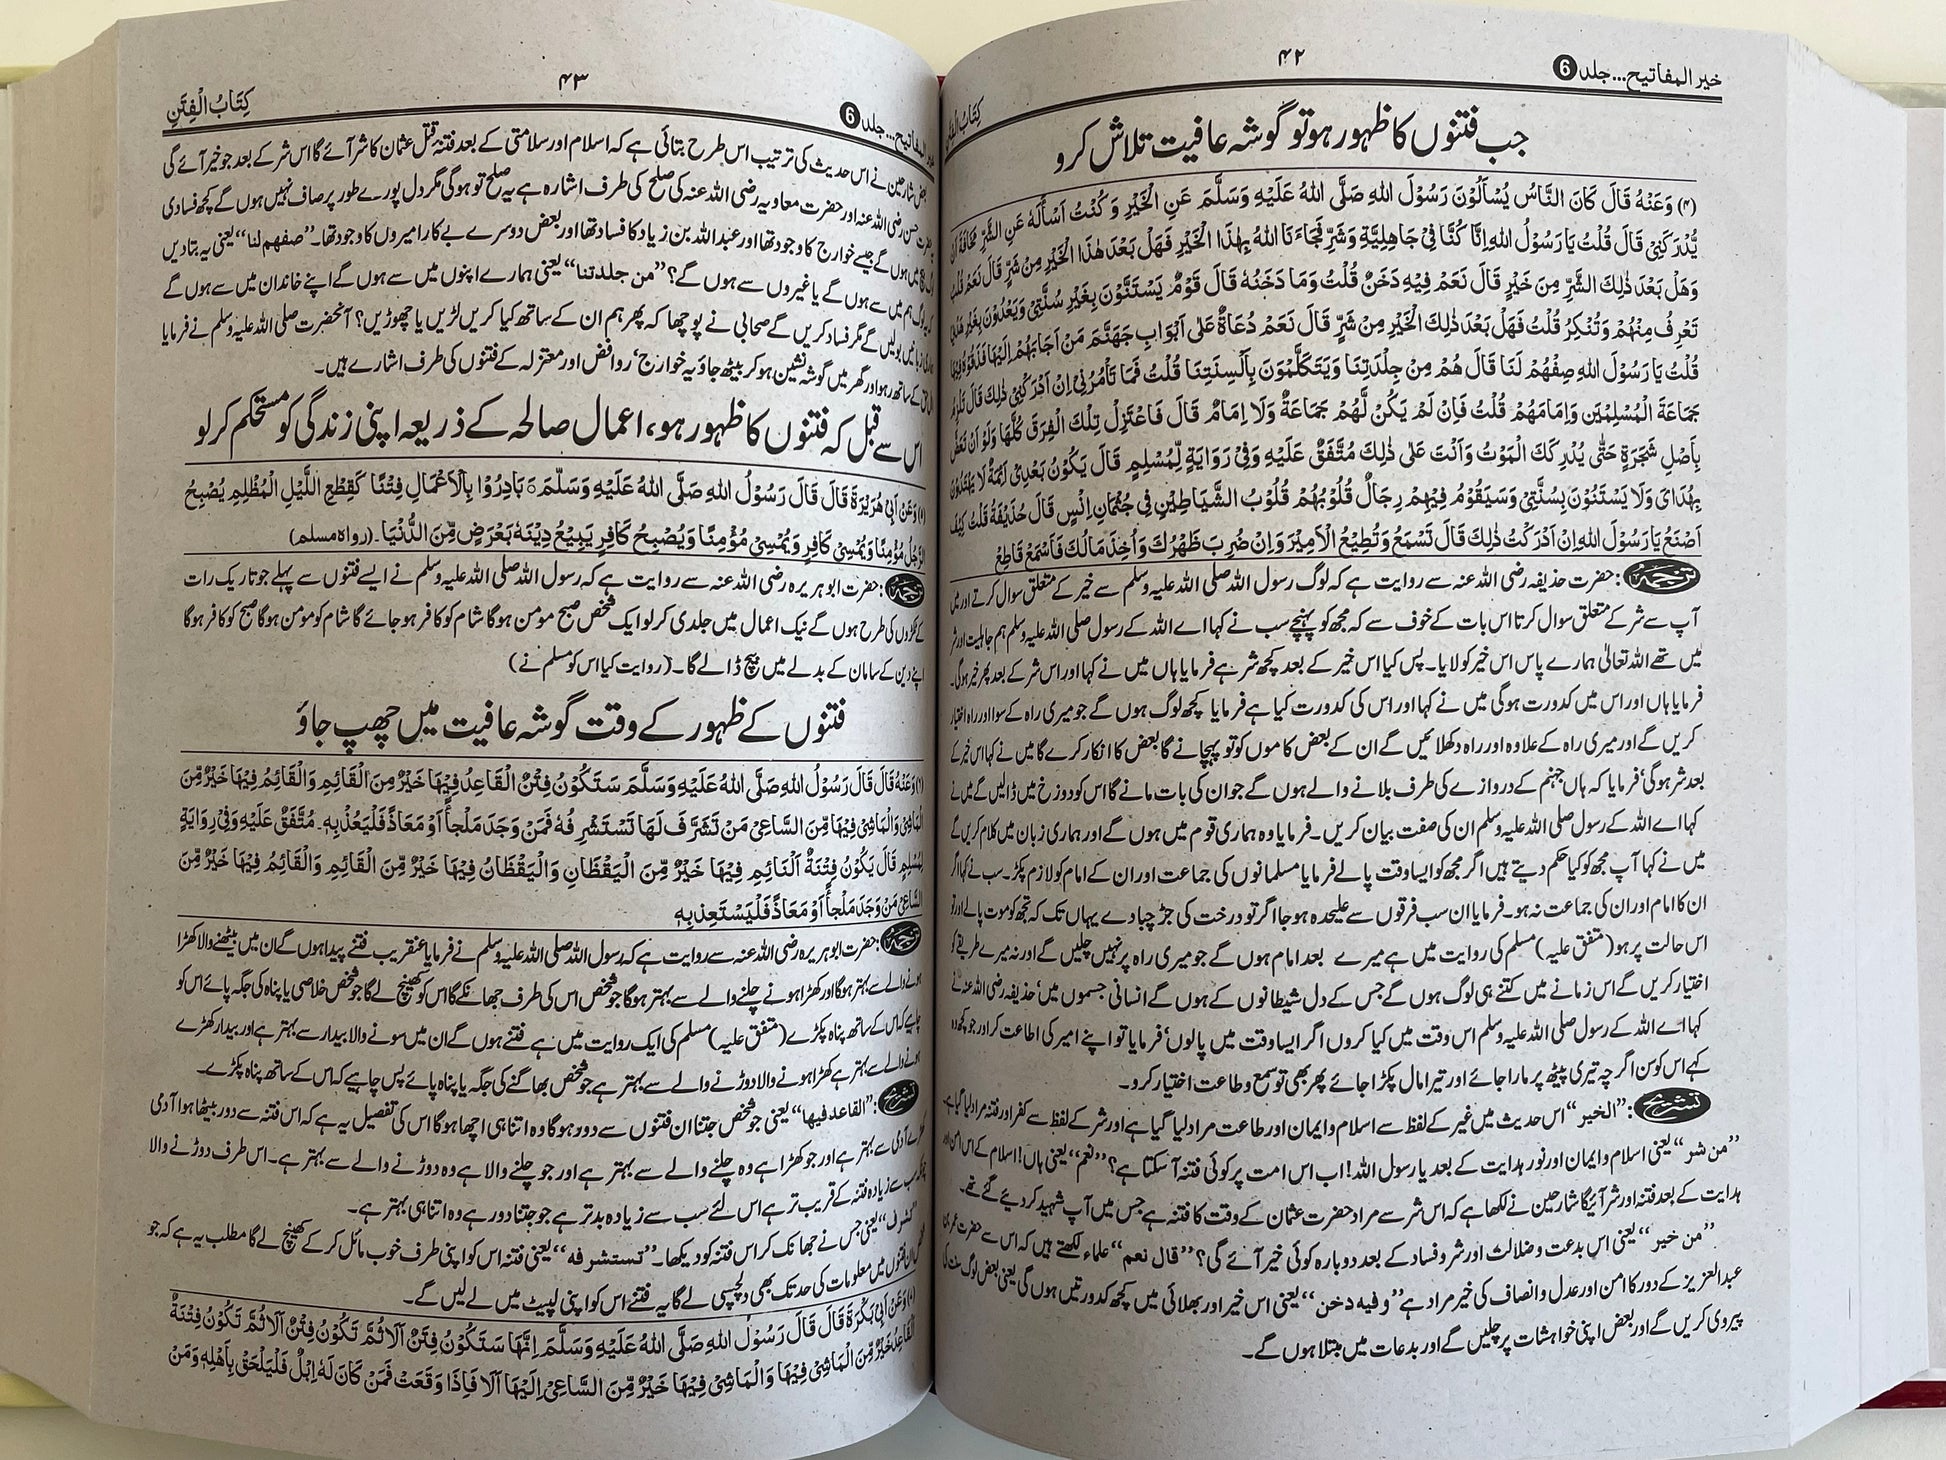 خیر المفاتیح...جلد 6
۴۲
کِتَابُ الْفِتَنِ
جب فتنوں کا ظہور ہو تو گوشہ عافیت تلاش کرو
(۴) وَعَنْهُ قَالَ كَانَ النَّاسُ يُسْأَلُوْنَ رَسُوْلَ اللهِ صَلَّى اللهُ عَلَيْهِ وَسَلَّمَ عَنِ الْخَيْرِ وَكُنْتُ اَسْأَلُهُ عَنِ الشَّرِّ مَخَافَةَ اَنْ
يُّدْرِكَنِيْ قَالَ قُلْتُ يَا رَسُوْلَ اللهِ اِنَّا كُنَّا فِيْ جَاهِلِيَّةٍ وَشَرٍّ فَجَاءَنَا اللهُ بِهٰذَا الْخَيْرِ فَهَلْ بَعْدَ هٰذَا الْخَيْرِ مِنْ شَرٍّ قَالَ نَعَمْ قُلْتُ
وَهَلْ بَعْدَ ذٰلِكَ الشَّرِّ مِنْ خَيْرٍ قَالَ نَعَمْ فِيْهِ دَخَنٌ قُلْتُ وَمَا دَخَنُهُ قَالَ قَوْمٌ يَسْتَنُّوْنَ بِغَيْرِ سُنَّتِيْ وَيَهْدُوْنَ بِغَيْرِ هَدْيِيْ
تَعْرِفُ مِنْهُمْ وَتُنْكِرُ قُلْتُ فَهَلْ بَعْدَ ذٰلِكَ الْخَيْرِ مِنْ شَرٍّ قَالَ نَعَمْ دُعَاةٌ عَلٰى اَبْوَابِ جَهَنَّمَ مَنْ اَجَابَهُمْ اِلَيْهَا قَذَفُوْهُ فِيْهَا
قُلْتُ يَا رَسُوْلَ اللهِ صِفْهُمْ لَنَا قَالَ هُمْ مِنْ جِلْدَتِنَا وَيَتَكَلَّمُوْنَ بِاَلْسِنَتِنَا قُلْتُ فَمَا تَأْمُرُنِيْ اِنْ اَدْرَكَنِيْ ذٰلِكَ قَالَ تَلْزَمُ
جَمَاعَةَ الْمُسْلِمِيْنَ وَاِمَامَهُمْ قُلْتُ فَاِنْ لَمْ يَكُنْ لَّهُمْ جَمَاعَةٌ وَلَا اِمَامٌ قَالَ فَاعْتَزِلْ تِلْكَ الْفِرَقَ كُلَّهَا وَلَوْ اَنْ تَعَضَّ
بِاَصْلِ شَجَرَةٍ حَتّٰى يُدْرِكَكَ الْمَوْتُ وَاَنْتَ عَلٰى ذٰلِكَ مُتَّفَقٌ عَلَيْهِ وَفِيْ رِوَايَةٍ لِّمُسْلِمٍ قَالَ يَكُوْنُ بَعْدِيْ اَئِمَّةٌ لَا يَهْتَدُوْنَ
بِهُدَايَ وَلَا يَسْتَنُوْنَ بِسُنَّتِيْ وَسَيَقُوْمُ فِيْهِمْ رِجَالٌ قُلُوْبُهُمْ قُلُوْبُ الشَّيَاطِيْنِ فِيْ جُثْمَانِ اِنْسٍ قَالَ حُذَيْفَةُ قُلْتُ كَيْفَ
اَصْنَعُ يَا رَسُوْلَ اللهِ اِنْ اَدْرَكْتُ ذٰلِكَ قَالَ تَسْمَعُ وَتُطِيْعُ الْاَمِيْرَ وَاِنْ ضُرِبَ ظَهْرُكَ وَاُخِذَ مَالُكَ فَاسْمَعْ فَاطِعْ
ترجمہ: حضرت حذیفہ رضی اللہ عنہ سے روایت ہے کہ لوگ رسول اللہ صلی اللہ علیہ وسلم سے خیر کے متعلق سوال کرتے اور میں
آپ سے شر کے متعلق سوال کرتا اس بات کے خوف سے کہ مجھ کو پہنچے سب نے کہا اے اللہ کے رسول صلی اللہ علیہ وسلم ہم جاہلیت اور شر
میں تھے اللہ تعالیٰ ہمارے پاس اس خیر کو لایا۔ پس کیا اس خیر کے بعد کچھ شر ہے فرمایا ہاں میں نے کہا اور اس شر کے بعد پھر خیر ہوگی۔
فرمایا ہاں اور اس میں کدورت ہوگی میں نے کہا اور اس کی کدورت کیا ہے فرمایا کچھ لوگ ہوں گے جو میری راہ کے سوا اور راہ اختیار
کریں گے اور میری راہ کے علاوہ اور راہ دکھلائیں گے ان کے بعض کاموں کو تو پہچانے گا بعض کا انکار کرے گا میں نے کہا اس خیر کے
بعد شر ہوگی فرمایا کہ ہاں جہنم کے دروازے کی طرف بلانے والے ہوں گے جو ان کی بات مانے گا اس کو دوزخ میں ڈالیں گے میں نے
کہا اے اللہ کے رسول صلی اللہ علیہ وسلم ان کی صفت بیان کریں۔ فرمایا وہ ہماری قوم میں ہوں گے اور ہماری زبان میں کلام کریں گے
میں نے کہا آپ مجھ کو کیا حکم دیتے ہیں اگر مجھ کو ایسا وقت پالے فرمایا مسلمانوں کی جماعت اور ان کے امام کو لازم پکڑ۔ سب نے کہا اگر
ان کا امام اور ان کی جماعت نہ ہو۔ فرمایا ان سب فرقوں سے علیحدہ ہو جا اگر تو درخت کی جڑ چبا دے یہاں تک کہ تجھ کو موت پالے اور تو
اس حالت پر ہو (متفق علیہ) مسلم کی روایت میں ہے میرے بعد امام ہوں گے جو میری راہ پر نہیں چلیں گے اور نہ میرے طریقے کو
اختیار کریں گے اس زمانے میں کتنے ہی لوگ ہوں گے جس کے دل شیطانوں کے ہوں گے انسانی جسموں میں، حذیفہ رضی اللہ عنہ نے
کہا اے اللہ کے رسول صلی اللہ علیہ وسلم اس وقت میں کیا کروں اگر ایسا وقت میں پالوں، فرمایا تو اپنے امیر کی اطاعت کر اور جو کچھ وہ
کہے اس کو سن اگرچہ تیری پیٹھ پر مارا جائے اور تیرا مال پکڑا جائے پھر بھی تو سمع و طاعت اختیار کرو۔
تشریح: ”الخیر“ اس حدیث میں غیر کے لفظ سے اسلام و ایمان اور طاعت مراد لیا گیا ہے اور شر کے لفظ سے کفر اور فتنہ مراد لیا گیا ہے۔
”من شر“ یعنی اسلام و ایمان اور نور ہدایت کے بعد یا رسول اللہ! اب اس امت پر کوئی فتنہ آسکتا ہے؟ ”نعم“ یعنی ہاں! اسلام کے اس امن اور
ہدایت کے بعد فتنہ اور شر آئیگا شارحین نے لکھا ہے کہ اس شر سے مراد حضرت عثمان کے وقت کا فتنہ ہے جس میں آپ شہید کر دیے گئے تھے۔
”من خیر“ یعنی اس بدعت و ضلالت اور شر و فساد کے بعد دوبارہ کوئی خیر آئے گی؟ ”قال نعم“ علماء لکھتے ہیں کہ اس سے حضرت عمر بن
عبدالعزیز کے دور کا امن اور عدل و انصاف کی خیر مراد ہے ”وفیه دخن“ یعنی اس خیر اور بھلائی میں کچھ کدورتیں ہوں گی یعنی بعض لوگ سنت کی
پیروی کریں گے اور بعض اپنی خواہشات پر چلیں گے اور بدعات میں مبتلا ہوں گے۔
خیر المفاتیح...جلد 6
۴۳
کِتَابُ الْفِتَنِ
بعض شارحین نے اس حدیث کی ترتیب اس طرح بتائی ہے کہ اسلام اور سلامتی کے بعد فتنۂ قتل عثمان کا شر آئے گا اس شر کے بعد جو خیر آئے گی
حضرت حسن رضی اللہ عنہ اور حضرت معاویہ رضی اللہ عنہ کی صلح کی طرف اشارہ ہے یہ صلح تو ہوگی مگر دل پورے طور پر صاف نہیں ہوں گے کچھ فسادی
میں ہوں گے جیسے خوارج کا وجود تھا اور عبداللہ بن زیاد کا فساد تھا اور بعض دوسرے بے کار امیروں کا وجود تھا۔ ”صفهم لنا“ یعنی یہ بتادیں
ہم میں سے ہوں گے یا غیروں سے ہوں گے؟ ”من جلدتنا“ یعنی ہمارے اپنوں میں سے ہوں گے اپنے خاندان میں سے ہوں گے
بولیں گے مگر فساد کریں گے صحابی نے پوچھا کہ پھر ہم ان کے ساتھ کیا کریں لڑیں یا چھوڑیں؟ آنحضرت صلی اللہ علیہ وسلم نے فرمایا
کے ساتھ رہو اور گھر میں گوشہ نشین ہو کر بیٹھ جاؤ یہ خوارج، روافض اور معتزلہ کے فتنوں کی طرف اشارے ہیں۔
اس سے قبل کہ فتنوں کا ظہور ہو، اعمال صالحہ کے ذریعہ اپنی زندگی کو مستحکم کر لو
(۵) وَعَنْ اَبِيْ هُرَيْرَةَ قَالَ قَالَ رَسُوْلُ اللهِ صَلَّى اللهُ عَلَيْهِ وَسَلَّمَ بَادِرُوْا بِالْاَعْمَالِ فِتْنًا كَقِطَعِ اللَّيْلِ الْمُظْلِمِ يُصْبِحُ
الرَّجُلُ مُؤْمِنًا وَيُمْسِيْ كَافِرٍ وَيُمْسِيْ مُؤْمِنًا وَيُصْبِحُ كَافِرٍ يَبِيْعُ دِيْنَهُ بَعْرَضٍ مِّنَ الدُّنْيَا۔ (رواه مسلم)
ترجمہ: حضرت ابو ہریرہ رضی اللہ عنہ سے روایت ہے کہ رسول اللہ صلی اللہ علیہ وسلم نے ایسے فتنوں سے پہلے جو تاریک رات
کے ٹکڑوں کی طرح ہوں گے نیک اعمال میں جلدی کر لو ایک شخص صبح مومن ہوگا شام کو کافر ہو جائے گا شام کو مومن ہوگا صبح کو کافر ہوگا
اپنے دین کے سامان کے بدلے میں بیچ ڈالے گا۔ (روایت کیا اس کو مسلم نے)
فتنوں کے ظہور کے وقت گوشہ عافیت میں چھپ جاؤ
(۶) وَعَنْهُ قَالَ قَالَ رَسُوْلُ اللهِ صَلَّى اللهُ عَلَيْهِ وَسَلَّمَ سَتَكُوْنُ فِتَنٌ الْقَاعِدُ فِيْهَا خَيْرٌ مِنَ الْقَائِمِ وَالْقَائِمُ فِيْهَا خَيْرٌ مِّنَ
الْمَاشِيْ وَالْمَاشِيْ فِيْهَا مِّنَ السَّاعِيْ مَنْ تَشَرَّفَ لَهَا تَسْتَشْرِفُهُ فَمَنْ وَجَدَ مَلْجأً اَوْ مَعَاذً فَلْيَعُذْ بِهٖ۔ مُتَّفَقٌ عَلَيْهِ وَفِيْ رِوَايَةٍ
لِمُسْلِمٍ قَالَ يَكُوْنُ فِتْنَةٌ اَلنَّائِمِ فِيْهَا خَيْرٌ مِّنَ الْيَقْظَانِ وَالْيَقْظَانُ فِيْهَا خَيْرٌ مِّنَ الْقَائِمِ وَالْقَائِمُ فِيْهَا خَيْرٌ مِّنَ
السَّاعِيْ مَنْ وَجَدَ مَلْجأً اَوْ مَعَاذً فَلْيَسْتَعِذْ بِهٖ
ترجمہ: حضرت ابو ہریرہ رضی اللہ عنہ سے روایت ہے کہ رسول اللہ صلی اللہ علیہ وسلم نے فرمایا عنقریب فتنے پیدا ہوں گے ان میں بیٹھنے والا کھڑا
ہونے والے سے بہتر ہوگا اور کھڑا ہونے چلنے والے سے بہتر ہوگا جو شخص اس کی طرف جھانکے گا اس کو کھینچ لے گا جو شخص خلاصی یا پناہ کی جگہ پائے اس کو
چاہیے کہ اس کے ساتھ پناہ پکڑے (متفق علیہ) مسلم کی ایک روایت میں ہے فتنے ہوں گے ان میں سونے والا بیدار سے بہتر ہے اور بیدار کھڑے
ہونے والے سے بہتر ہے کھڑا ہونے والا دوڑنے والے سے بہتر ہے جو شخص بھاگنے کی جگہ یا پناہ پائے پس چاہیے کہ اس کے ساتھ پناہ پکڑے۔
تشریح: ”القاعد فیها“ یعنی جو شخص جتنا ان فتنوں سے دور ہوگا وہ اتنا ہی اچھا ہوگا اس کی تفصیل یہ ہے کہ اس فتنہ سے دور بیٹھا ہوا آدمی
کھڑے آدمی سے بہتر ہے اور جو کھڑا ہے وہ چلنے والے سے بہتر ہے اور جو چلنے والا ہے وہ دوڑنے والے سے بہتر ہے۔ اس طرف دوڑنے والا
سب سے زیادہ فتنہ کے قریب تر ہے اس لئے سب سے زیادہ بدتر ہے جو جتنا دور ہے وہ اتنا ہی بہتر ہے۔
یعنی جس نے جھانک کر اس فتنہ کو دیکھا۔ ”تستشرفه“ یعنی فتنہ اس کو اپنی طرف خوب مائل کر کے کھینچ لے گا مطلب یہ ہے کہ جو
ان فتنوں میں معلومات کی حد تک بھی دلچسپی لے گا یہ فتنے اس کو اپنی لپیٹ میں لے لیں گے۔
وَعَنْ اَبِيْ بَكْرَةَ قَالَ قَالَ رَسُوْلُ اللهِ صَلَّى اللهُ عَلَيْهِ وَسَلَّمَ اِنَّهَا سَتَكُوْنُ فِتَنٌ اَلَا ثُمَّ تَكُوْنُ فِتْنٌ اَلَا ثُمَّ تَكُوْنُ فِتْنَةٌ
الْقَاعِدُ خَيْرٌ مِّنَ الْمَاشِيْ فِيْهَا وَالْمَاشِيْ فِيْهَا خَيْرٌ مِّنَ السَّاعِيْ اِلَيْهَا اَلَا فَاِذَا وَقَعَتْ فَمَنْ كَانَ لَهُ اِبْلٌ فَلْيَلْحَقْ بِاِبِلِهٖ وَمَنْ